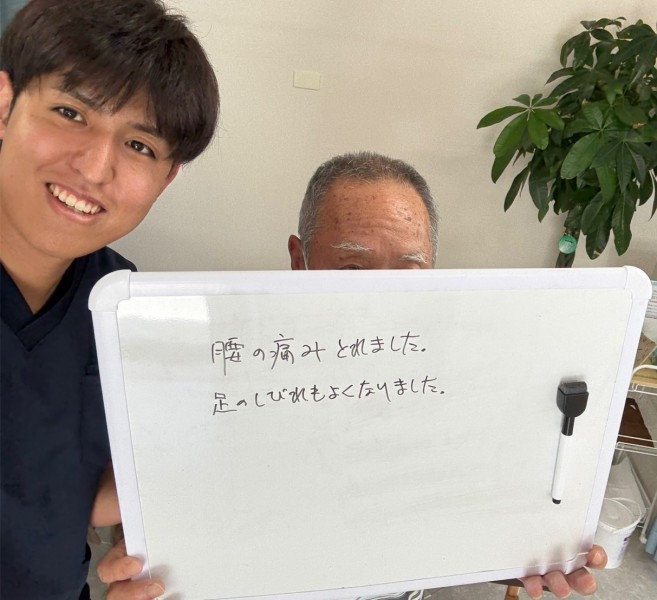 腰の痛みとれました。
足のしびれもよくなりました。